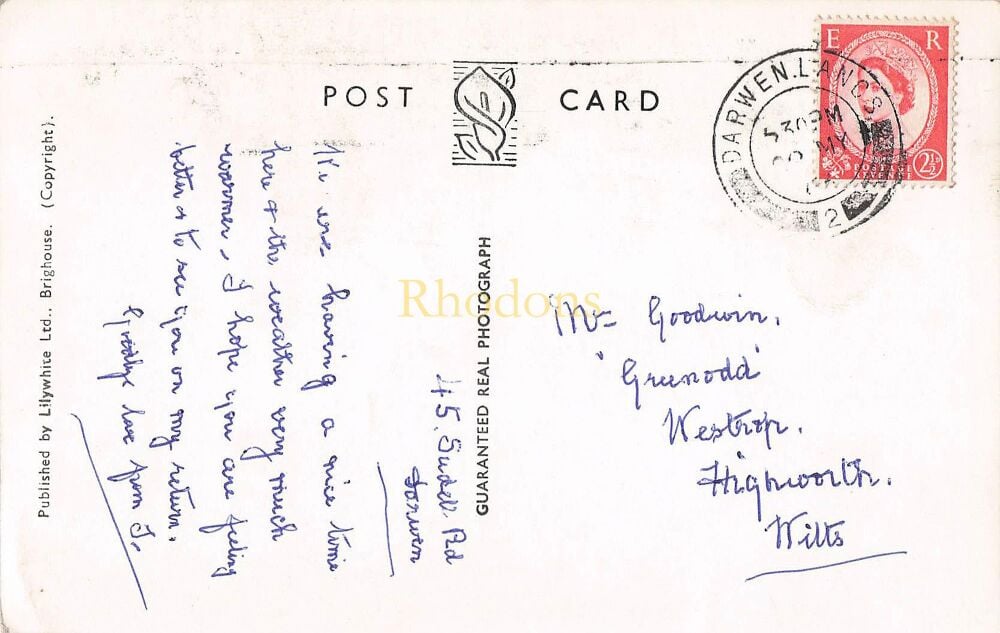 POST CARD
E R
2½
DARWEN. LANCS.
5 30 PM
MY
2
Published by Lilywhite Ltd., Brighouse. (Copyright).
GUARANTEED REAL PHOTOGRAPH
45. Sudell Rd
Darwen
We are having a nice time
here & the weather very much
warmer, I hope you are feeling
better & to see you on my return.
Goodbye love from
Goodwin.
"Greenodd"
Westrop.
Highworth.
Wilts
Rhodons